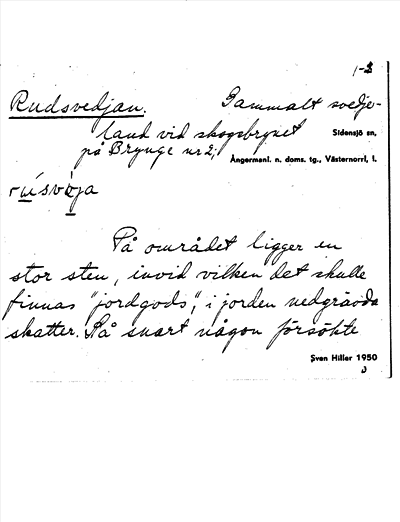 1-3
Rudsvedjan. Gammalt svedje-
land vid skogsbrynet Sidensjö sn,
på Brynge nr 2; Ångermanl. n. doms. tg., Västernorrl. l.
På området ligger en
stor sten, invid vilken det skulle
finnas "jordgods", i jorden nedgrävda
skatter. Så snart någon försökte
Sven Hiller 1950